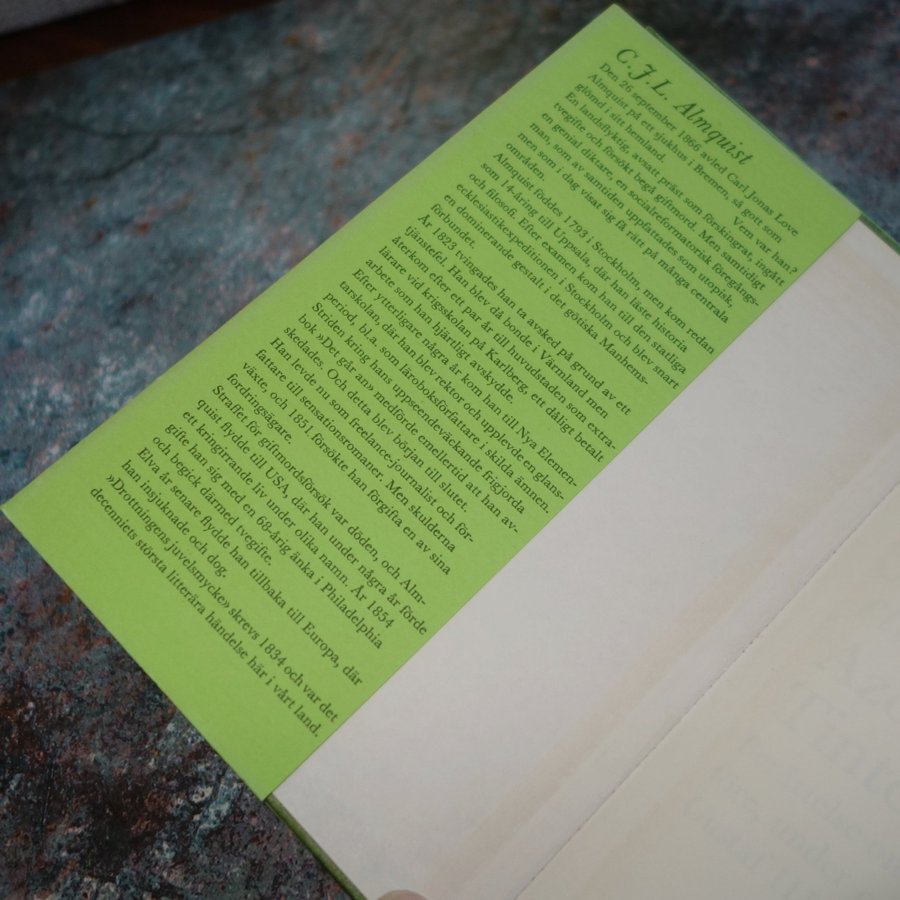 C.J.L. Almquist
Den 26 september 1866 avled Carl Jonas Love
Almquist på ett sjukhus i Bremen, så gott som
glömd i sitt hemland. Vem var han?
En landsflyktig, avsatt präst som förskingrat, ingått
tvegifte och försökt begå giftmord. Men samtidigt
en genial diktare, en socialreformatorisk föregångs-
man, som av samtiden uppfattades som utopisk,
men som i dag visat sig få rätt på många centrala
områden.
Almquist föddes 1793 i Stockholm, men kom redan
som 14-åring till Uppsala, där han läste historia
och filosofi. Efter examen kom han till den statliga
ecklesiastikexpeditionen i Stockholm och blev snart
en dominerande gestalt i det götiska Manhems-
förbundet.
År 1823 tvingades han ta avsked på grund av ett
tjänstefel. Han blev då bonde i Värmland men
återkom efter ett par år till huvudstaden som extra-
lärare vid krigsskolan på Karlberg, ett dåligt betalt
arbete som han hjärtligt avskydde.
Efter ytterligare några år kom han till Nya Elemen-
tarskolan, där han blev rektor och upplevde en glans-
period, bl.a. som läroboksförfattare i skilda ämnen.
Striden kring hans uppseendeväckande frigjorda
bok »Det går an» medförde emellertid att han av-
skedades. Och detta blev början till slutet.
Han levde nu som freelance-journalist och för-
fattare till sensationsromaner. Men skulderna
växte, och 1851 försökte han förgifta en av sina
fordringsägare.
Straffet för giftmordsförsök var döden, och Alm-
quist flydde till USA, där han under några år förde
ett kringirrande liv under olika namn. År 1854
gifte han sig med en 68-årig änka i Philadelphia
och begick därmed tvegifte.
Elva år senare flydde han tillbaka till Europa, där
han insjuknade och dog.
»Drottningens juvelsmycke» skrevs 1834 och var det
decenniets största litterära händelse här i vårt land.